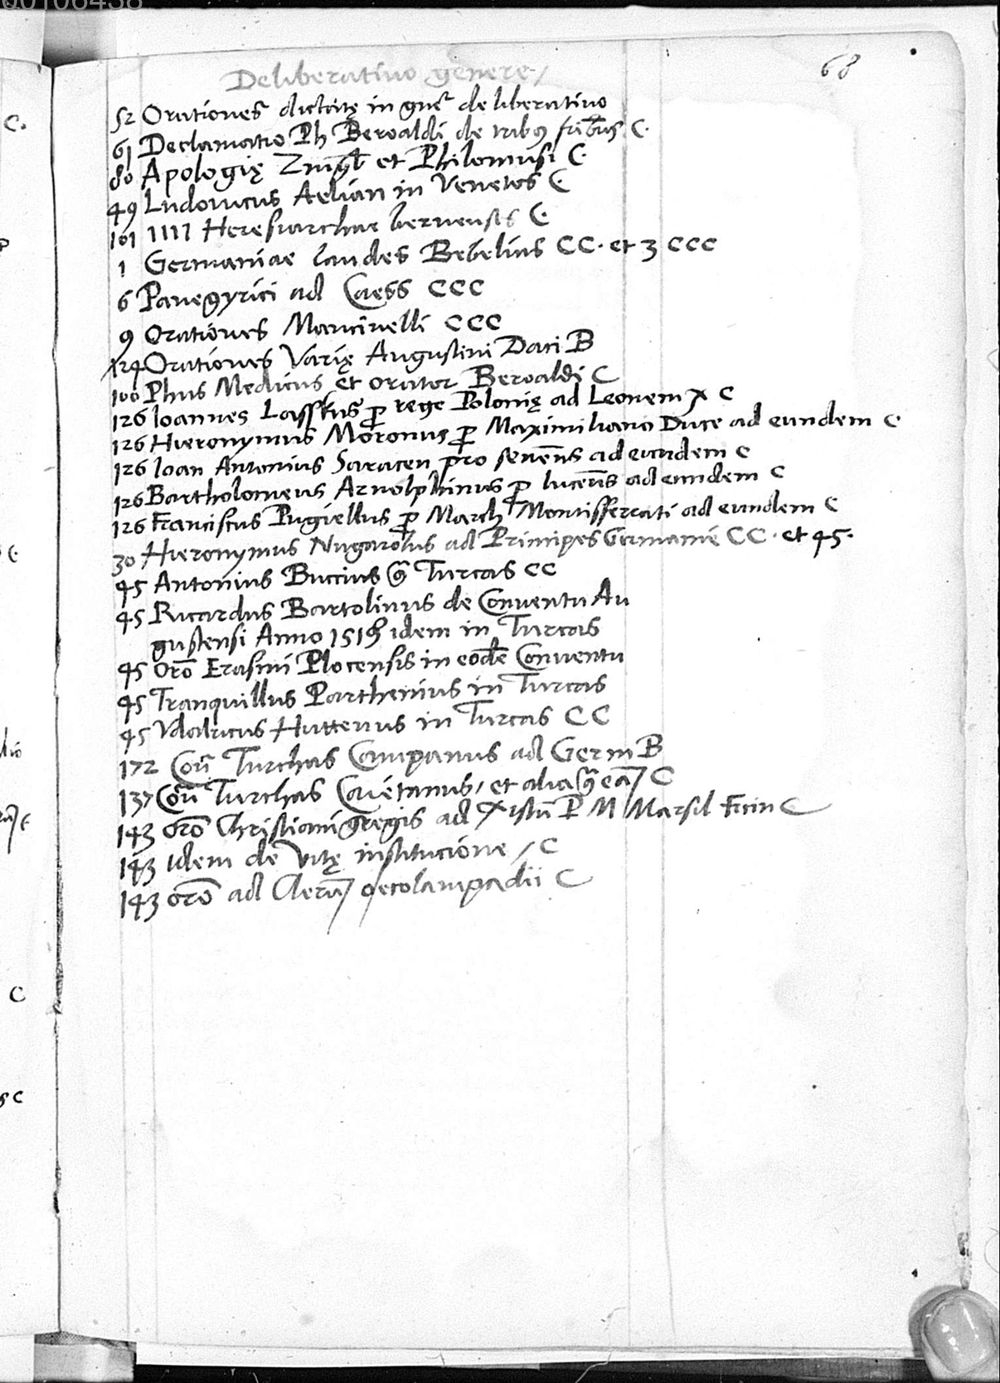 68
Deliberativo genere
52 Orationes dictatę in gne deliberativo
61 Declamatio Ph Beroaldi de tribus fribus C.
80 Apologię et Philomusi C
49 Ludovicus Aelian in Venetos C
101 1111 Heresiarchae bernensis C
1 Germaniae laudes Bebelius CC. et 3 CCC
6 Panegyrici ad Caess CCC
9 Orationes Mancinelli CCC
124 Orationes Varię Augustini Dati B
100 Phus Medicus et orator Beroaldi C
126 Ioannes Lasskus p rege Polonię ad Leonem X C
126 Hieronymus Moronus p Maximiliano Duce ad eundem C
126 Ioan Antonius Saracen pro senens ad eundem C
126 Bartholomeus Arnolphinus p lucens ad eundem C
126 Franciscus Pugiellus p March Montisferrati ad eundem C
30 Hieronymus Nugarolus ad Principes Germanie CC. et 45.
45 Antonius Buccius 9 Turcas CC
45 Ricardus Bartolinus de Conventu Au
gustensi Anno 1518 idem in Turcas
45 Oro Erasmi Plocensis in eode Conventu
45 Tranquillus Parthenius in Turcas
45 Vdalricus Huttenus in Turcas CC
172 Con Turchas Campanus ad Germ B
137 Con Turchas Caietanus, et alia 9 ea C
143 oro Christiani gregis ad Xistu P M Marsil Ficin C
143 idem de Vitę institucione / C
143 oro ad Cleru oecolampadii C